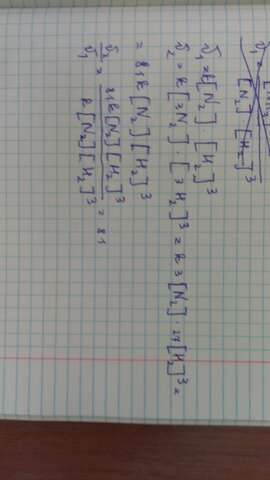 v₁ = k[N₂]·[H₂]³
v₂ = k[3N₂]·[3H₂]³ = k 3[N₂]·27[H₂]³ =
= 81k[N₂][H₂]³
v₂/v₁ = 81k[N₂][H₂]³/k[N₂][H₂]³ = 81